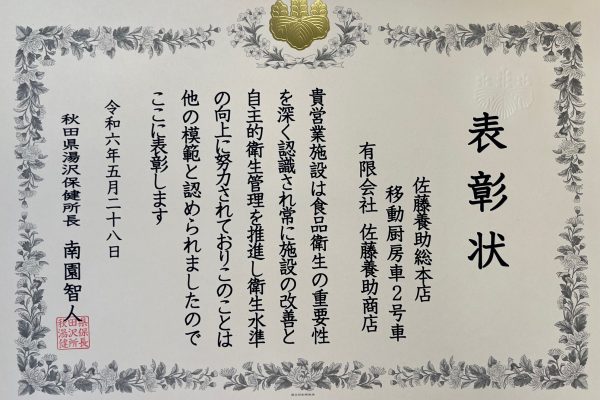 表彰状
佐藤養助総本店
移動厨房車2号車
有限会社 佐藤養助商店
貴営業施設は食品衛生の重要性
を深く認識され常に施設の改善と
自主的衛生管理を推進し衛生水準
の向上に努力されておりこのことは
他の模範と認められましたので
ここに表彰します
令和六年五月二十八日
秋田県湯沢保健所長 南園智人